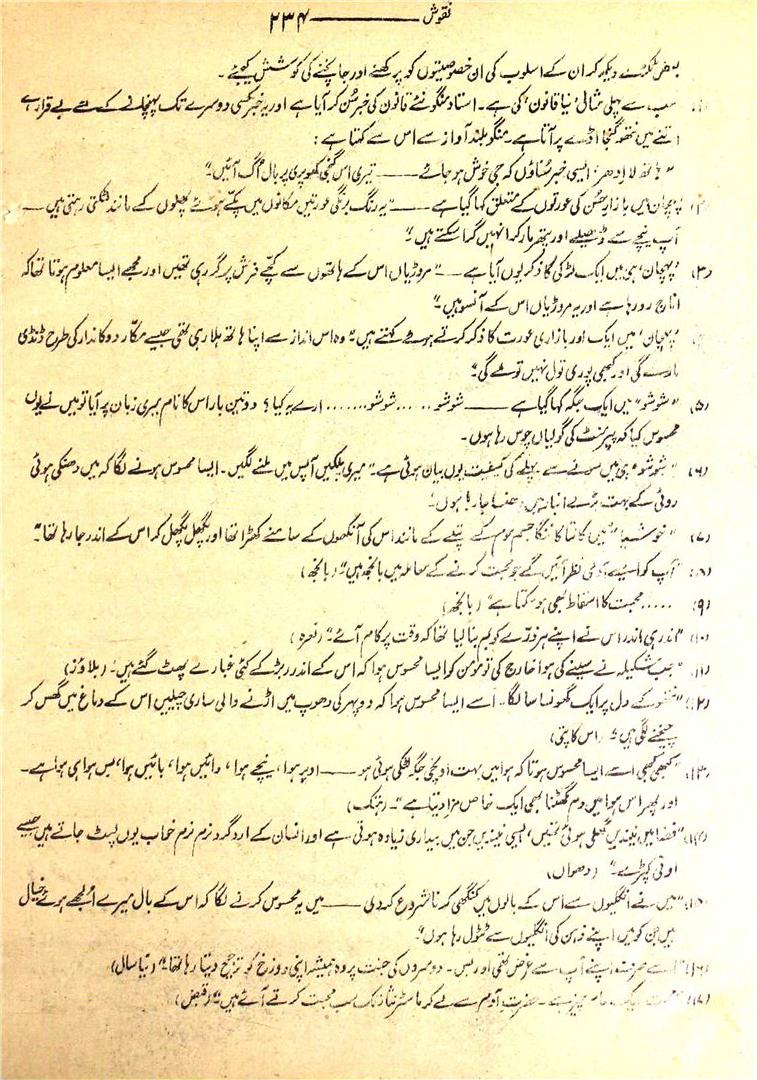 نقوش ــــــــ ۲۳۴
بعض ٹکڑے دیکھ کر ان کے اسلوب کی ان خصوصیتوں کو پرکھنے اور جانچنے کی کوشش کیجئے۔
سب سے پہلی مثال 'نیا قانون' کی ہے۔ استاد منگو نئے قانون کی خبر سن کر آیا ہے اور یہ خبر کسی دوسرے تک پہنچانے کے لئے بے قرار ہے
اتنے میں نتھو گنجا اڈے پر آتا ہے۔ منگو بلند آواز سے اس سے کہتا ہے:
"ہاتھ لا ادھر، ایسی خبر سناؤں کہ جی خوش ہو جائے ــــــ تیری اس گنجی کھوپری پر بال اُگ آئیں۔"
'پہچان' میں بازارِ حسن کی عورتوں کے متعلق کہا گیا ہے ــــــ "یہ رنگ برنگی عورتیں مکانوں میں پکے ہوئے پھلوں کے مانند لٹکتی رہتی ہیں ــــ
آپ نیچے سے ڈھیلے اور پتھر مار کر انہیں گرا سکتے ہیں۔"
(۳) 'پہچان' ہی میں ایک لڑکی کا ذکر یوں آیا ہے ــــ "مروڑیاں اس کے ہاتھوں سے کچے فرش پر گر رہی تھیں اور مجھے ایسا معلوم ہوتا تھا کہ
اناج رو رہا ہے اور یہ مروڑیاں اس کے آنسو ہیں۔"
'پہچان' میں ایک اور بازاری عورت کا ذکر کرتے ہوئے کہتے ہیں "وہ اس انداز سے اپنا ہاتھ ہلا رہی تھی جیسے مکار دوکاندار کی طرح ڈنڈی
مارے گی اور کبھی پوری تول نہیں تولے گی۔"
(۵) "شوشو" میں ایک جگہ کہا گیا ہے ــــــ شوشو ..... شوشو ....... ارے یہ کیا؟ دو تین بار اس کا نام میری زبان پر آیا تو میں نے یوں
محسوس کیا کہ پیپرمنٹ کی گولیاں چوس رہا ہوں۔
(۶) "شوشو" ہی میں سونے سے پہلے کی کیفیت یوں بیان ہوئی ہے۔ "میری پلکیں آپس میں ملنے لگیں۔ ایسا محسوس ہونے لگا کہ میں دھنکی ہوئی
روئی کے بہت بڑے انبار میں دھنسا جا رہا ہوں۔"
(۷) "خوشیا" میں کانتا کا ننگا جسم موم کے پتلے کے مانند اس کی آنکھوں کے سامنے کھڑا تھا اور پگھل پگھل کر اس کے اندر جا رہا تھا۔"
(۸) "آپ کو ایسے آدمی نظر آئیں گے جو محبت کرنے کے معاملہ میں بانجھ ہیں" (بانجھ)
(۹) ..... محبت کا اسقاط بھی ہو سکتا ہے" (بانجھ)
(۱۰) "اندر ہی اندر اس نے اپنے ہر ذرے کو بم بنا لیا تھا کہ وقت پر کام آئے۔" (نعرہ)
(۱۱) "جب شکیلہ نے سینے کی ہوا خارج کی تو مومن کو ایسا محسوس ہوا کہ اس کے اندر ربڑ کے کئی غبارے پھٹ گئے ہیں۔" (بلاؤز)
(۱۲) " کے دل پر ایک گھونسا سا لگا۔ اُسے ایسا محسوس ہوا کہ دوپہر کی دھوپ میں اڑنے والی ساری چیلیں اس کے دماغ میں گھس کر
چیخنے لگی ہیں۔" (اس کا پتی)
(۱۳) "کبھی کبھی اسے ایسا محسوس ہوتا کہ ہوا میں بہت اونچی جگہ لٹکی ہوئی ہو ــــــ اوپر ہوا، نیچے ہوا، دائیں ہوا، بائیں ہوا، بس ہوا ہی ہوا ہے۔
اور پھر اس ہوا میں دم گھٹنا بھی ایک خاص مزا دیتا ہے۔" (ہتک)
(۱۴) "فضا میں نیندیں گھلی ہوئی تھیں، ایسی نیندیں جن میں بیداری زیادہ ہوتی ہے اور انسان کے اردگرد نرم نرم خواب یوں لپٹ جاتے ہیں جیسے
اونی کپڑے۔" (دھواں)
(۱۵) "میں نے انگلیوں سے اس کے بالوں میں کنگھی کرنا شروع کر دی ــــ میں یہ محسوس کرنے لگا کہ اس کے بال میرے الجھے ہوئے خیال
ہیں جن کو میں اپنے ذہن کی انگلیوں سے ٹٹول رہا ہوں"۔
(۱۶) "اسے صرف اپنے آپ سے غرض تھی اور بس۔ دوسروں کی جنت پر وہ ہمیشہ اپنی دوزخ کو ترجیح دیتا رہا تھا۔" (نیا سال)
(۱۷) "محبت ایک عام چیز ہے۔ حضرت آدم سے لے کر ماسٹر نثار تک سب محبت کرتے آئے ہیں" (قبض)